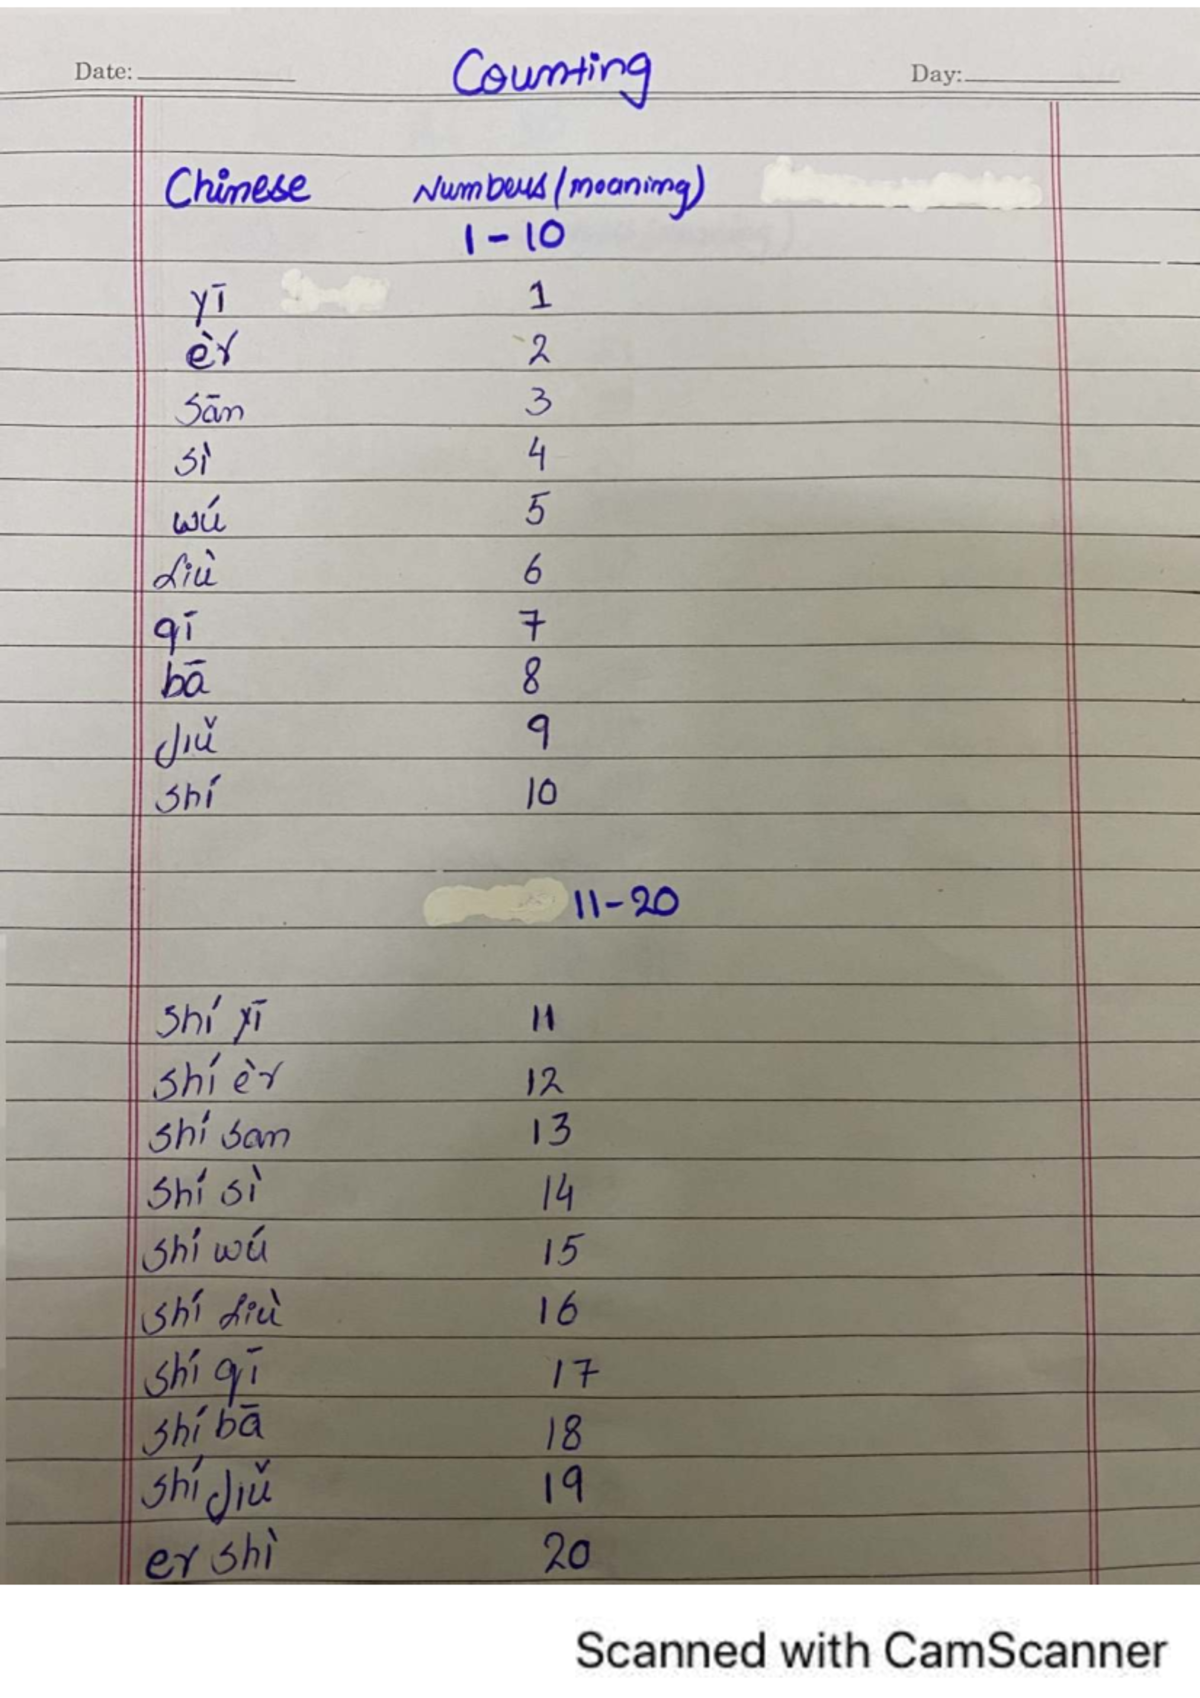 Date: Counting Day:
Chinese Numbers (meaning)
1-10
yī 1
èr 2
sān 3
sì 4
wú 5
liù 6
qī 7
bā 8
jiǔ 9
shí 10
11-20
shí yī 11
shí èr 12
shí san 13
shí sì 14
shí wú 15
shí liù 16
shí qī 17
shí bā 18
shí jiǔ 19
er shì 20
Scanned with CamScanner